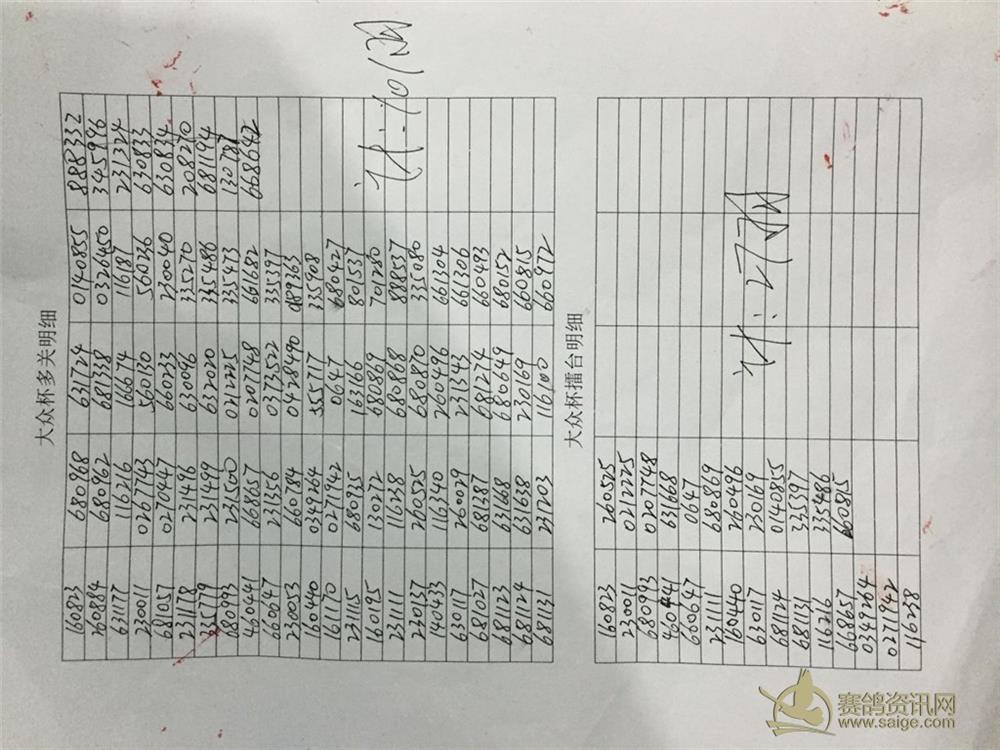 大众杯多关明细
160823 680968 631724 0140855 888332
260884 680962 681338 0326450 345996
631177 116216 166674 116187 231324
230011 0267743 560130 560236 630833
681057 0270447 660233 230040 630834
231178 231496 630096 335270 208270
235779 231499 632020 335486 681194
680993 231500 021225 335473 130787
460641 668657 0207748 661682 668642
660647 231356 0373522 335397
230053 660784 0428490 0189363
160440 0349264 555717 335908
161170 0271942 0647 680427
231115 680935 163166 801537
160195 130272 680869 701280
231111 116238 680868 888537
230137 260525 680870 335080
140433 116340 260496 661304
630117 260029 231343 661306
681027 681287 681274 660493
681123 631668 680649 680152
681124 631638 230169 660815
681131 231203 116100 660972
计:101羽
大众杯擂台明细
160823 260525
230011 0212225
680993 0207748
460641 631668
660647 0647
231111 680869
160440 260496
630117 230169
681124 0140855
681131 335397
116216 335486
668657 660815
0349264
0271942
116238
计:27羽
赛鸽资讯网
www.saige.com